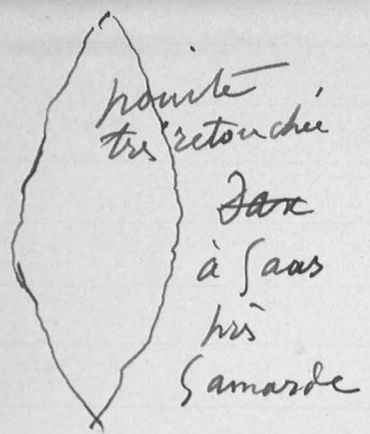 pointe
très retouchée
Dax
à Gaas
près
Gamarde